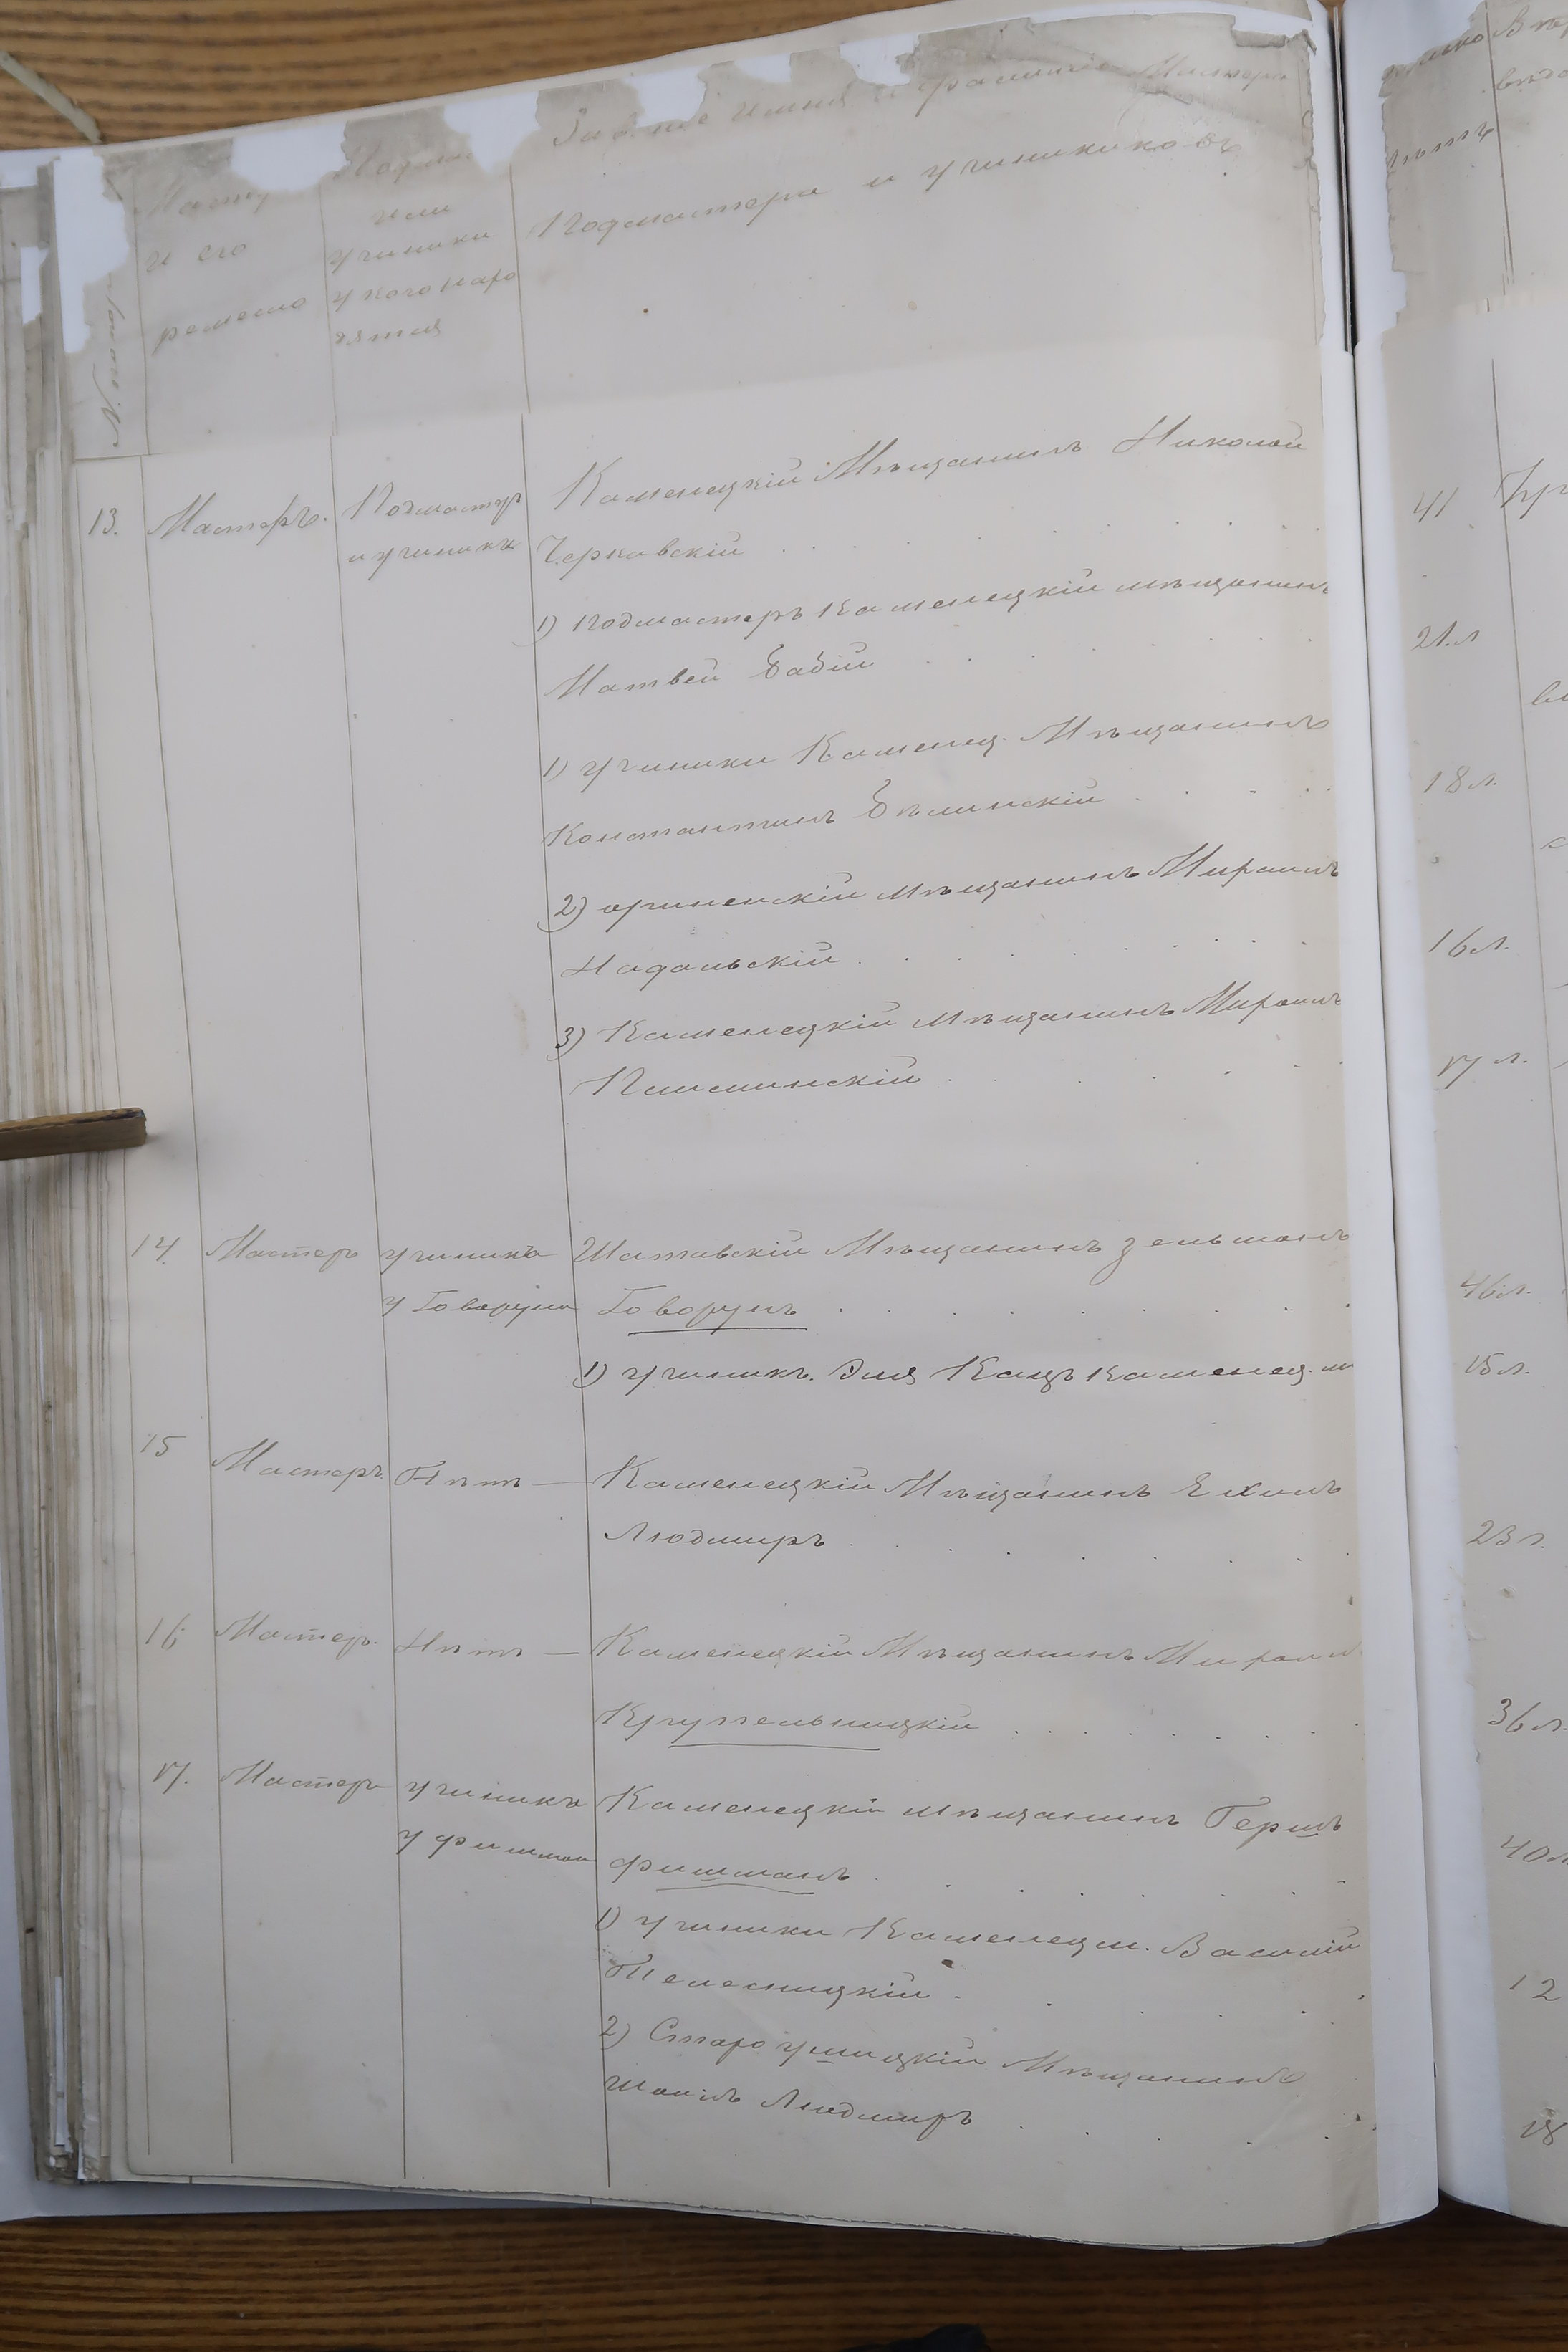 и его
ремесло
или
ученики
у кого нахо
дятся
Званіе имя и фамилія Мастера
Подмастера и учиниковъ
13. Мастеръ. Подмастер Каменецкій Мѣщанинъ Николай
и учиникъ Черкавскій
41
1) Подмастеръ Каменецкій мѣщанинъ
Матвей Бабій
21.л
1) Учиники Каменец. Мѣщанинъ
Константинъ Бѣлинскій
18 л.
2) орининскій мѣщанинъ Мираинъ
Надольскій
16 л.
3) Каменецкій мѣщанинъ Мираинъ
17 л.
14. Мастеръ учиникъ Шатавскій Мѣщанинъ Зельманъ
у Говоруна Говорунъ
46 л.
1) Учиникъ. Эля Кацъ Каменец. м
15 л.
15 Мастеръ Нѣтъ — Каменецкій Мѣщанинъ Ехилъ
Людмиръ
23 л.
16 Мастеръ. Нѣтъ — Каменецкій Мѣщанинъ
Крупельницкій
36 л.
17. Мастеръ учиникъ Каменецкій мѣщанинъ Гершъ
у Фишман Фишманъ
40 л
1) Учиники Каменец м. Василій
Телесницкій
12
2) Староушицкій Мѣщанинъ
Людмиръ
18